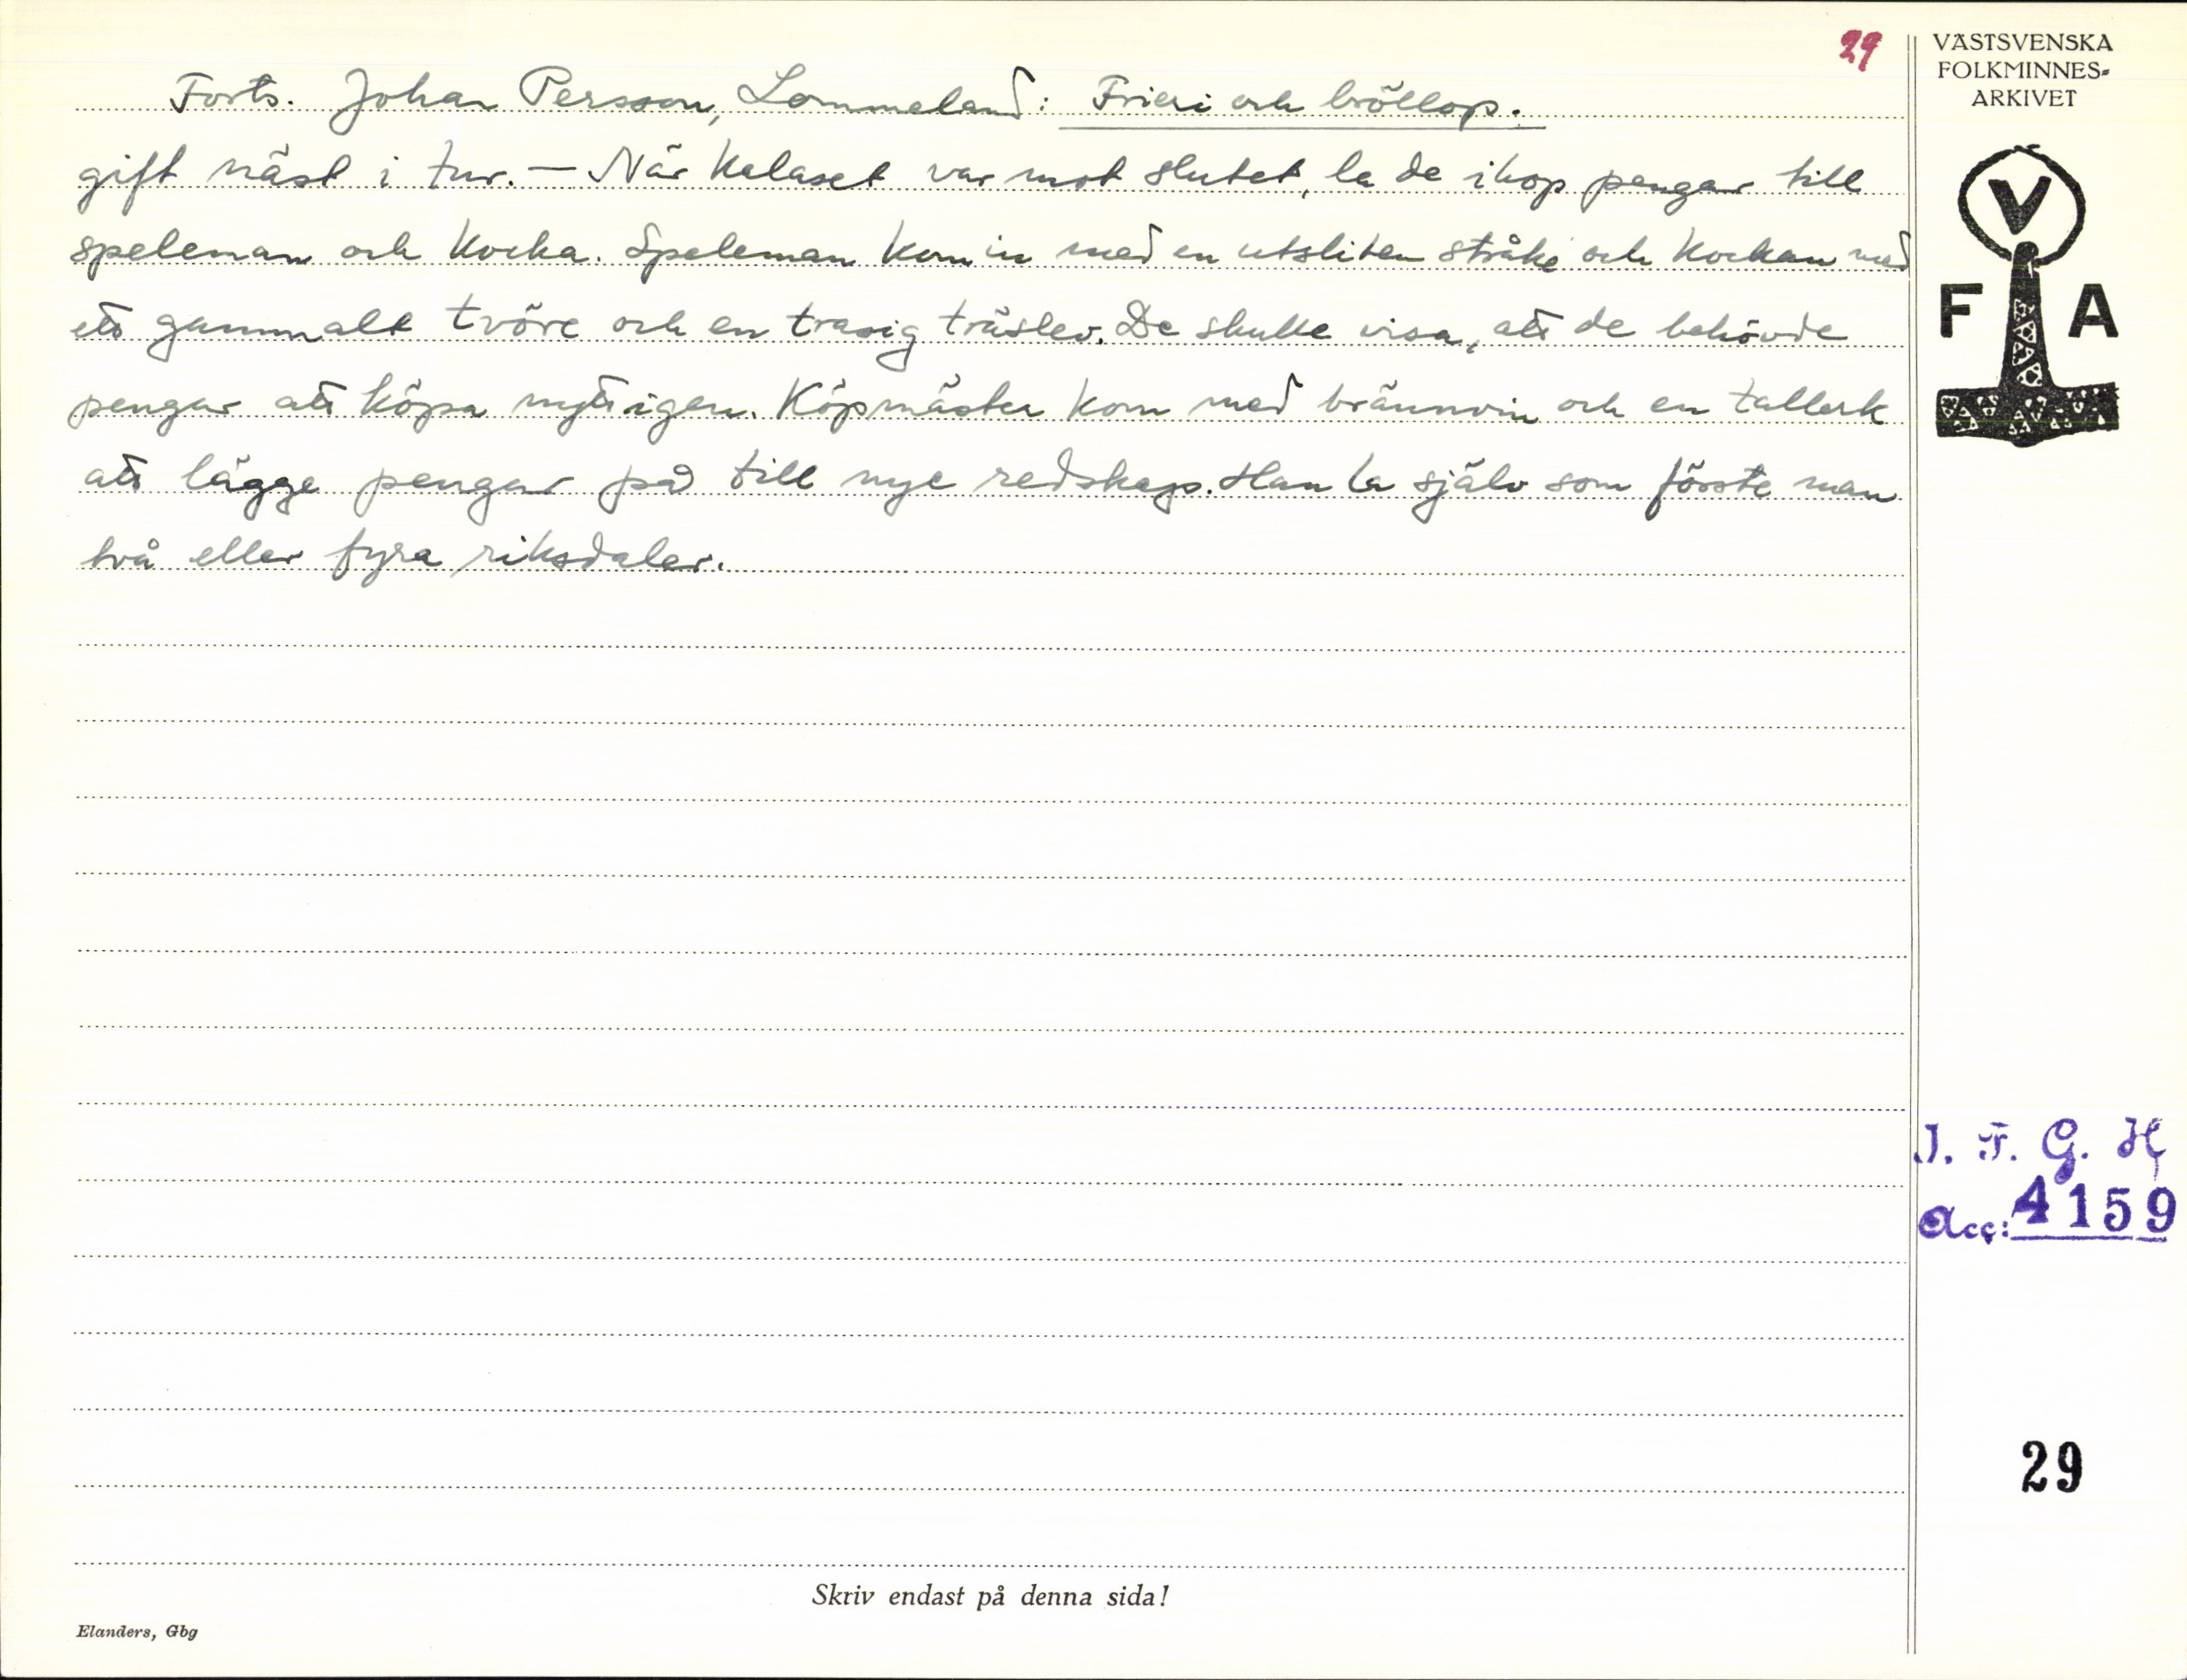 29
Forts. Johan Persson, Lommeland: Frieri och bröllop.
gift näst i tur. — När kalaset var mot slutet, la de ihop pengar till
speleman och kocka. Speleman kom in med en utsliten stråke och kockan med
ett gammalt tvöre och en trasig träslev. De skulle visa, att de behövde
pengar att köpa nytt igen. Köpmäster kom med brännvin och en tallerk
att lägge pengar på till nye redskap. Han la själv som förste man
två eller fyra riksdaler.
VÄSTSVENSKA
FOLKMINNES-
ARKIVET
V
F A
I. F. G. H
Acc: 4159
29
Skriv endast på denna sida!
Elanders, Gbg